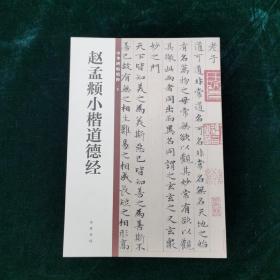 中华碑帖精粹
赵孟頫小楷道德经
中华书局
老子
道可道非常道名可名非常名無名天地之始
有名萬物之母常無欲以觀其妙常有欲以觀
其徼此兩者同出而異名同謂之玄玄之又玄衆
妙之門
天下皆知美之為美斯惡已皆知善之為善斯不
善已故有無之相生難易之相成長短之相形高